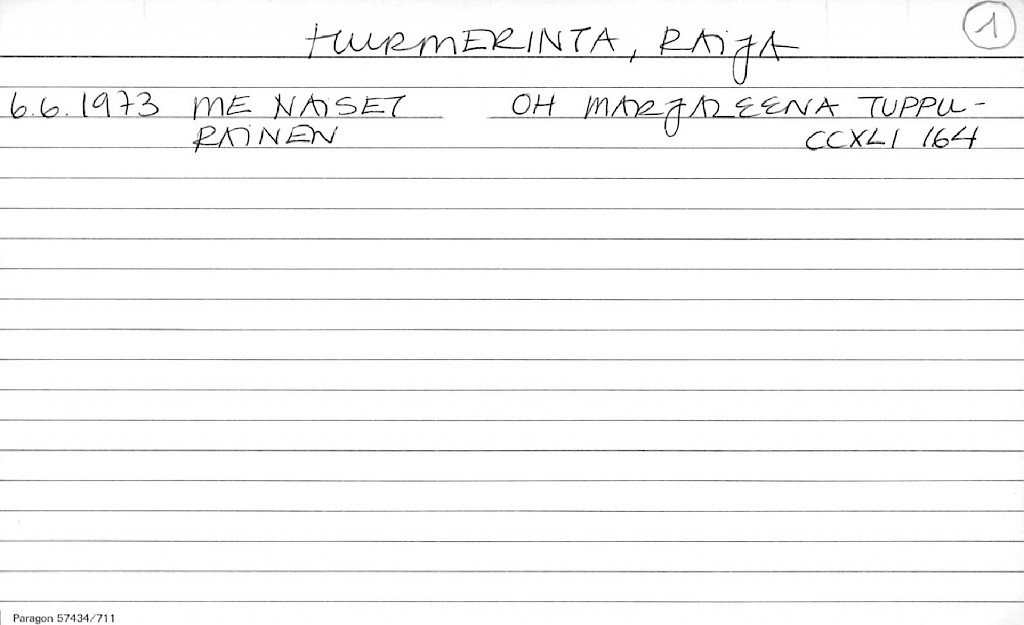 HURMERINTA, RAIJA
1
6.6.1973 ME NAISET OH MARJALEENA TUPPU-
RAINEN CCXLI 164
Paragon 57434/711